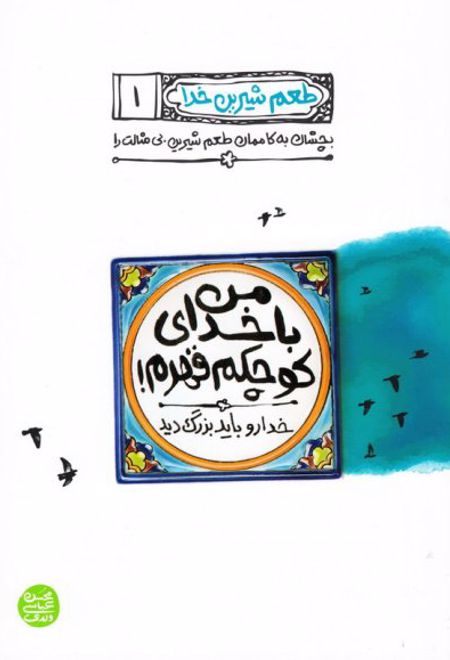 طعم شیرین خدا
۱
بچشان به کاممان طعم شیرین بی مثالت را
من
با خدای
کوچکم قهرم!
خدا رو باید بزرگ دید
محسن
عباسی
ولدی